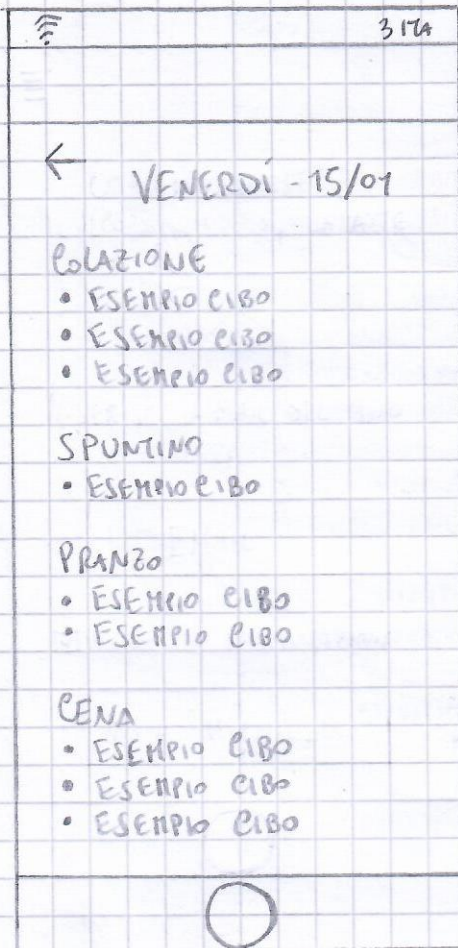 VENERDÌ - 15/01
COLAZIONE
• ESEMPIO CIBO
• ESEMPIO CIBO
• ESEMPIO CIBO
SPUNTINO
• ESEMPIO CIBO
PRANZO
• ESEMPIO CIBO
• ESEMPIO CIBO
CENA
• ESEMPIO CIBO
• ESEMPIO CIBO
• ESEMPIO CIBO